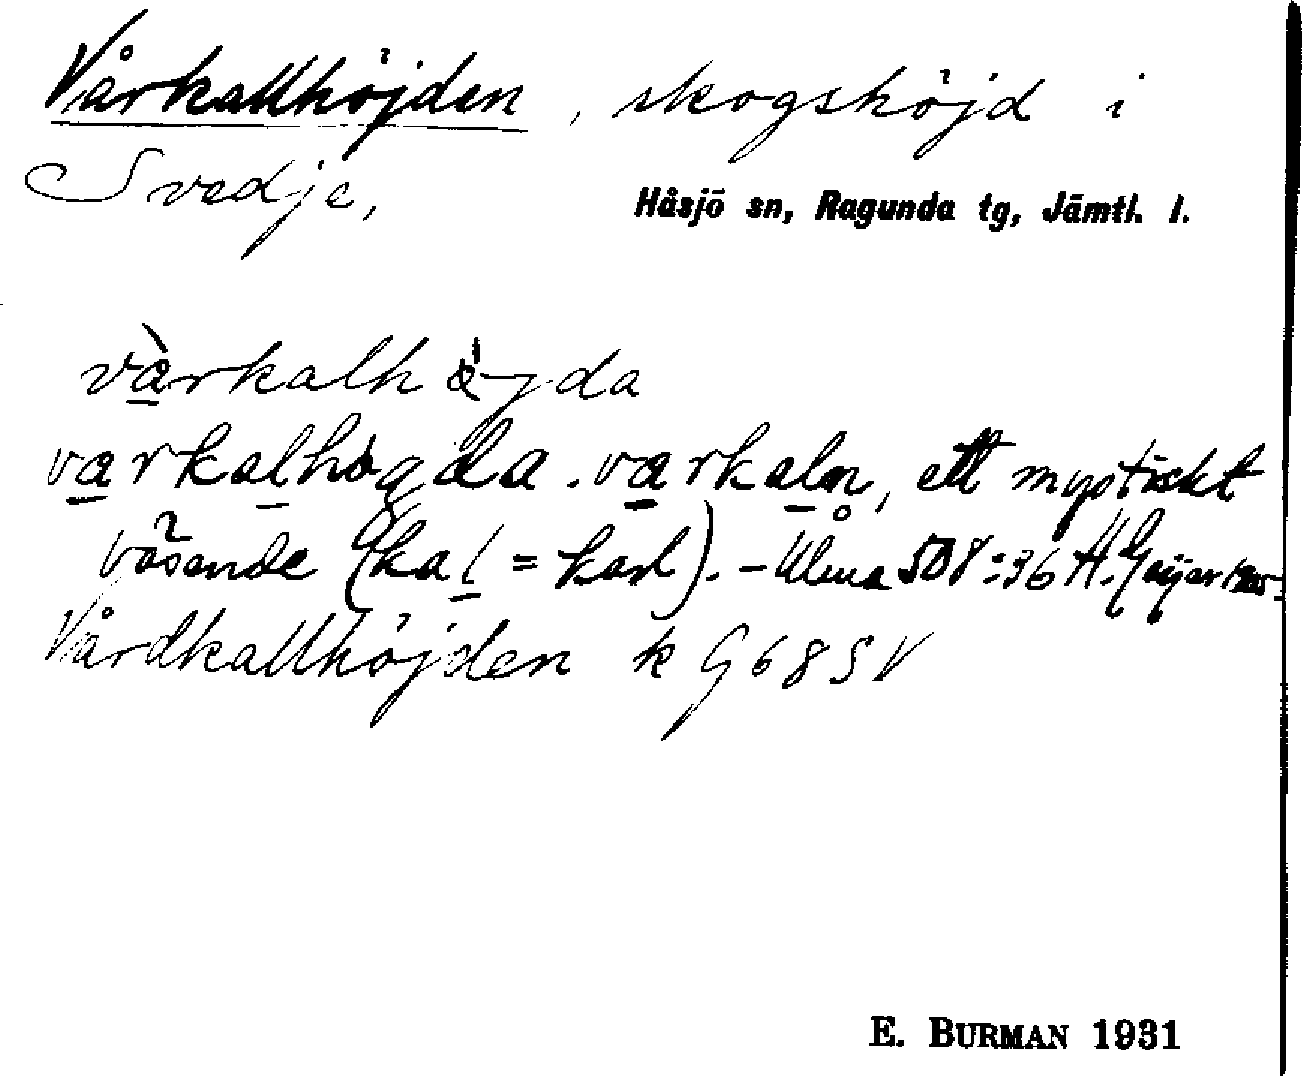 Vårkallhöjden, skogshöjd i
Svedje, Håsjö sn, Ragunda tg, Jämtl. l.
vàrkalhö̀gda
varkalhögda. varkaln, ett mystiskt
väsende (kal = karl). - Ulma 508:36 H. Geijer
Vårdkallhöjden k G 68 SV
E. BURMAN 1931